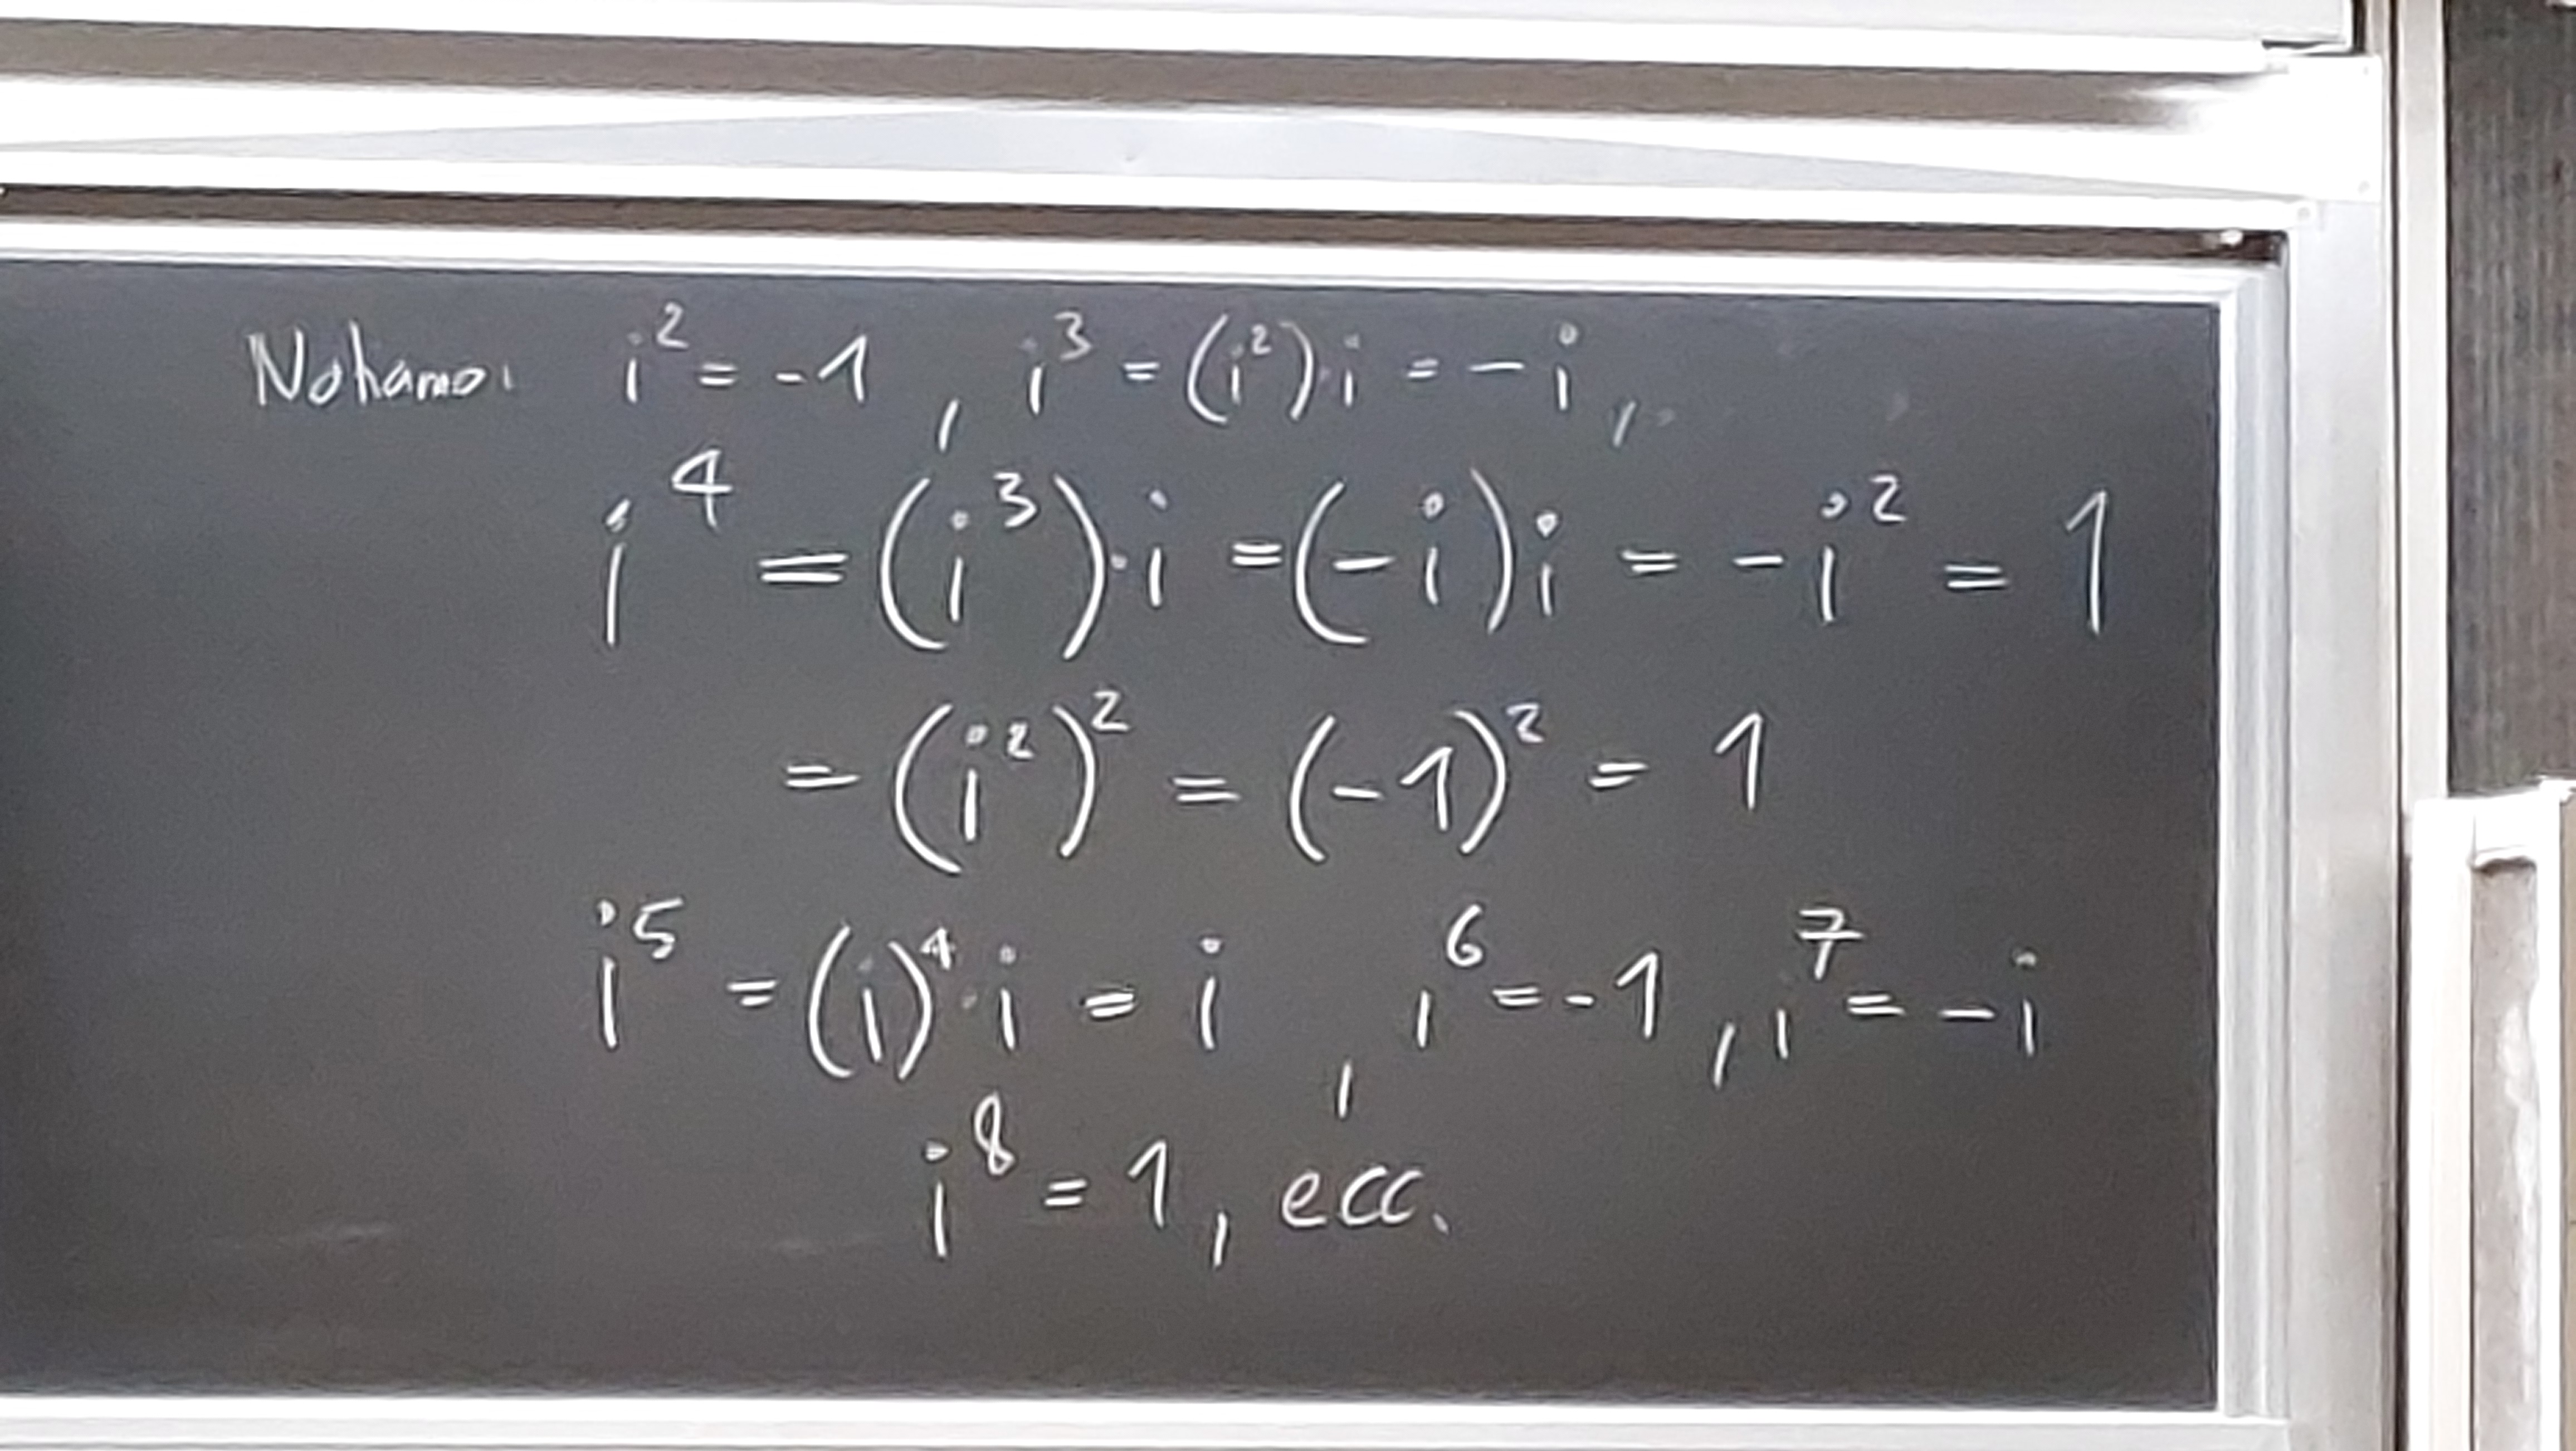 Notiamo: i² = -1 , i³ = (i²)·i = -i ,
i⁴ = (i³)·i = (-i)i = -i² = 1
= (i²)² = (-1)² = 1
i⁵ = (i)⁴·i = i , i⁶ = -1 , i⁷ = -i
i⁸ = 1 , ecc.